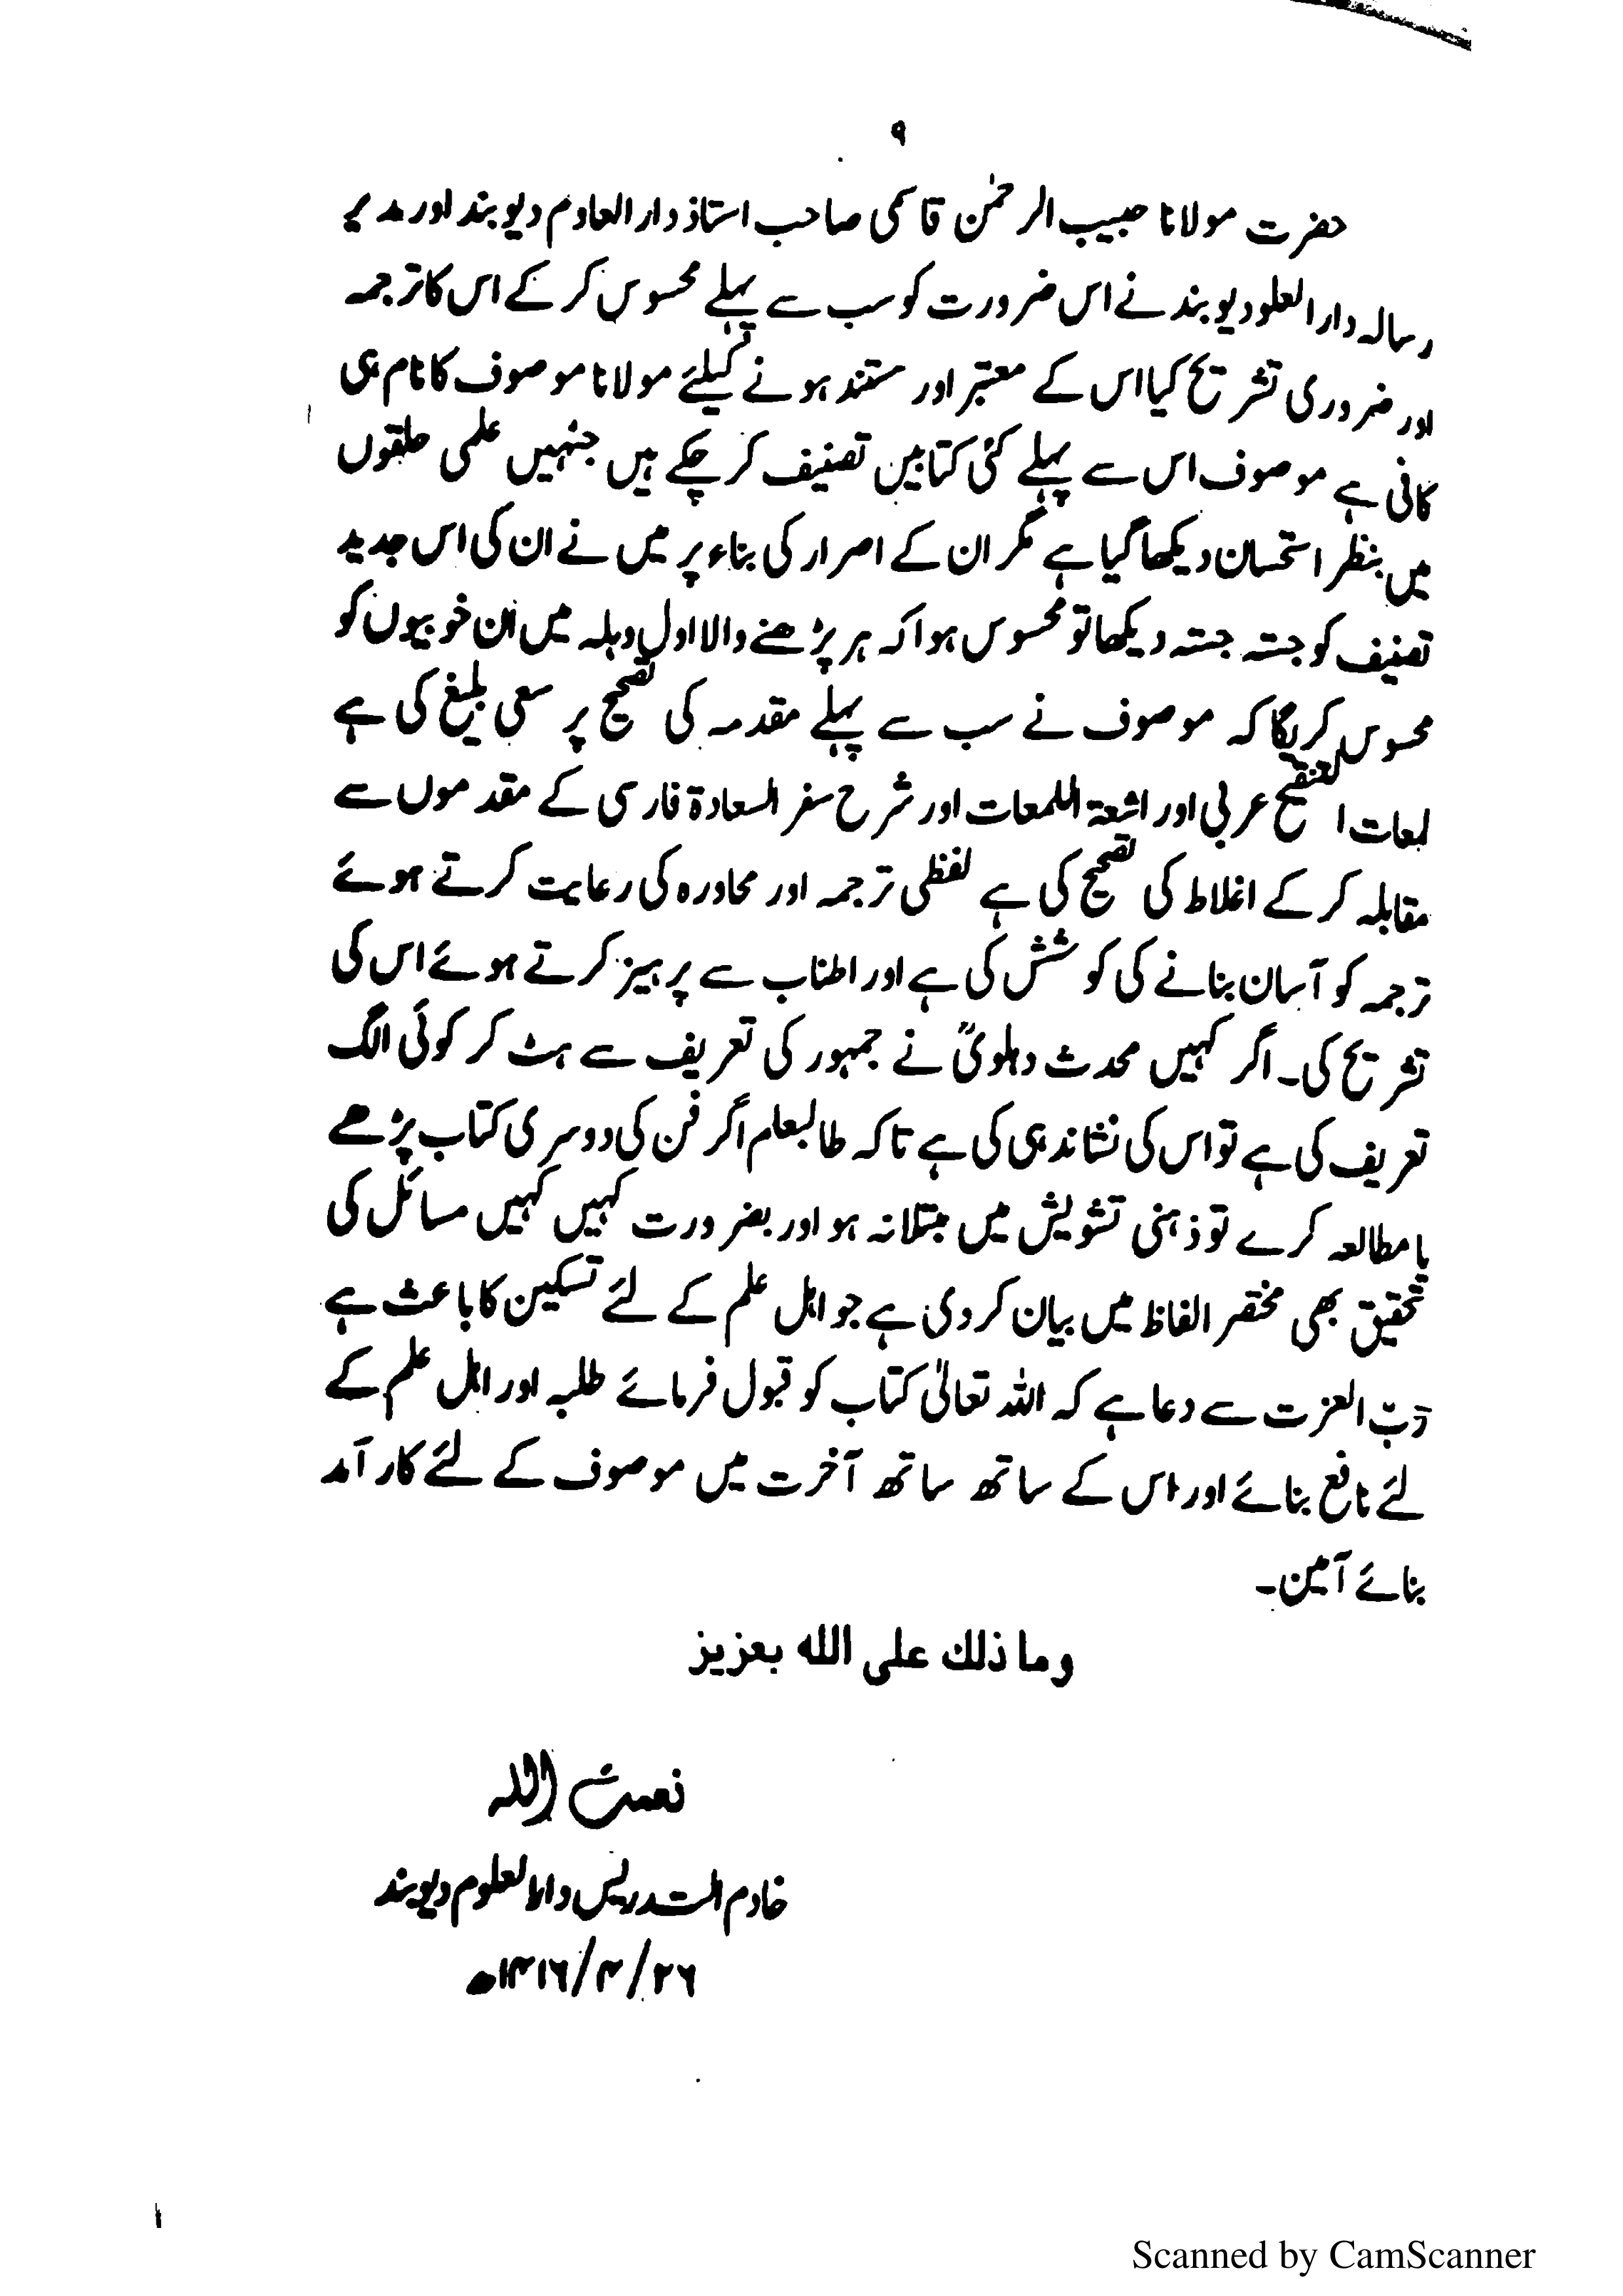 ۹
حضرت مولانا حبیب الرحمٰن قاسمی صاحب استاذ دار العلوم دیوبند اور مدیر
رسالہ دار العلود یوبند نے اس ضرورت کو سب سے پہلے محسوس کر کے اس کا ترجمہ
اور ضروری تشریح کیا اس کے معتبر اور مستند ہونے کیلئے مولانا موصوف کا نام ہی
کافی ہے موصوف اس سے پہلے کئی کتابیں تصنیف کر چکے ہیں جنہیں علمی حلقوں
میں بنظر استحسان دیکھا گیا ہے مگر ان کے اصرار کی بناء پر میں نے ان کی اس جدید
تصنیف کو جستہ جستہ دیکھا تو محسوس ہوا کہ ہر پڑھنے والا اول وہلہ میں ان خوبیوں کو
محسوس کریگا کہ موصوف نے سب سے پہلے مقدمہ کی تصحیح پر سعی بلیغ کی ہے
لمعات التنقیح عربی اور اشعۃ اللمعات اور شرح سفر السعادۃ فارسی کے مقدموں سے
مقابلہ کر کے اغلاط کی تصحیح کی ہے لفظی ترجمہ اور محاورہ کی رعایت کرتے ہوئے
ترجمہ کو آسان بنانے کی کوشش کی ہے اور اطناب سے پرہیز کرتے ہوئے اس کی
تشریح کی۔ اگر کہیں محدث دہلویؒ نے جمہور کی تعریف سے ہٹ کر کوئی الگ
تعریف کی ہے تو اس کی نشاندہی کی ہے تاکہ طالبعلم اگر فن کی دوسری کتاب پڑھے
یا مطالعہ کرے تو ذہنی تشویش میں مبتلا نہ ہو اور بضرورت کہیں کہیں مسائل کی
تحقیق بھی مختصر الفاظ میں بیان کر دی ہے جو اہل علم کے لئے تسکین کا باعث ہے
ربّ العزت سے دعا ہے کہ اللہ تعالیٰ کتاب کو قبول فرمائے طلبہ اور اہل علم کے
لئے نافع بنائے اور اس کے ساتھ ساتھ آخرت میں موصوف کے لئے کار آمد
بنائے آمین۔
وما ذلك على الله بعزيز
نعمت اللہ
خادم التدریس دارالعلوم دیوبند
۲۶/۴/۱۴۱۶ھ
Scanned by CamScanner